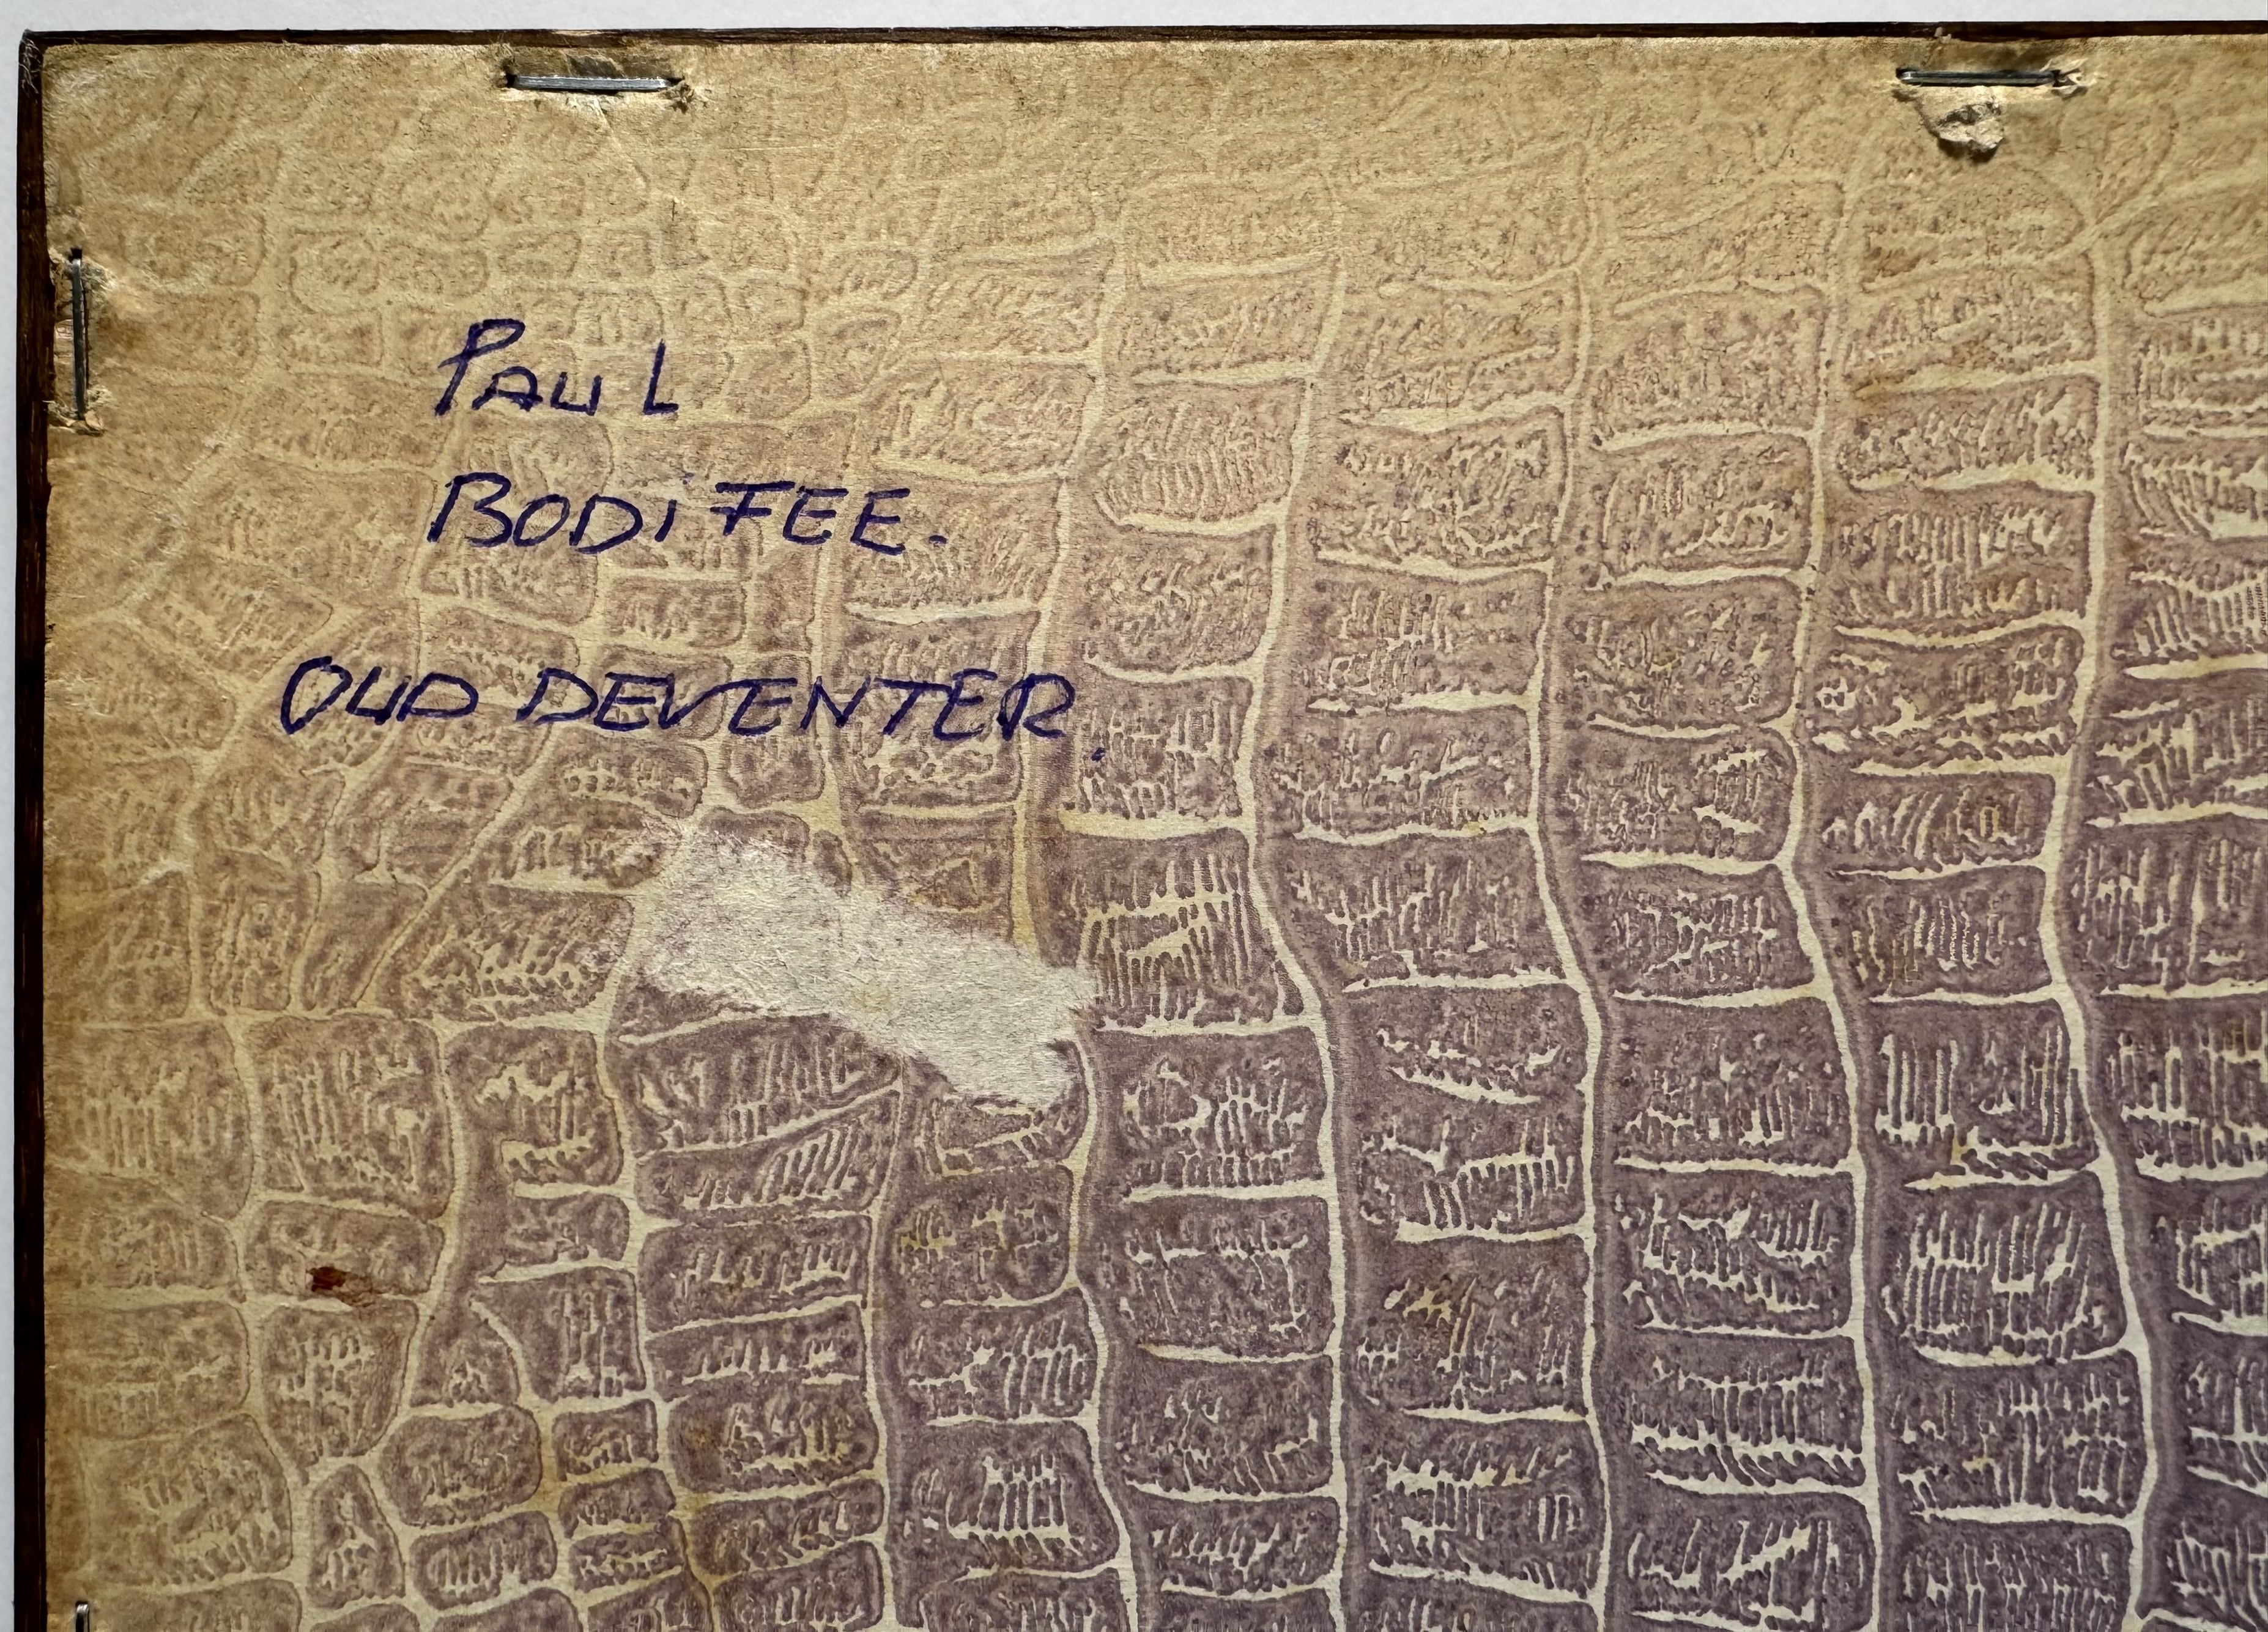 PAUL
BODiFEE.
OUD DEVENTER.